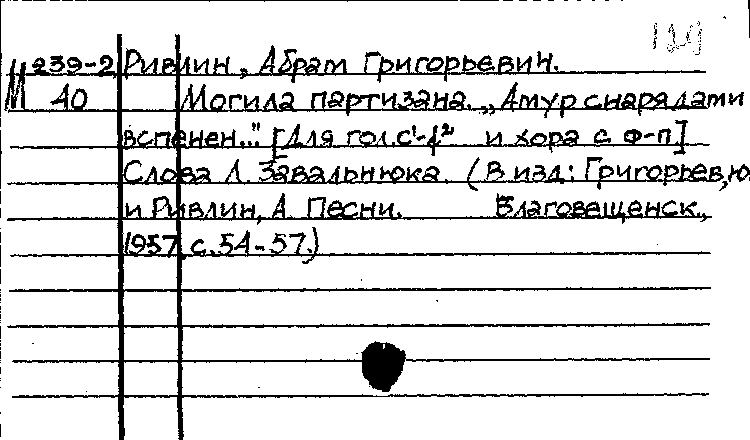 129
М 239-2 Ривлин, Абрам Григорьевич.
40 Могила партизана. „Амур снарядами
вспенен..." [Для гол. с¹-f² и хора с ф-п]
Слова Л. Завальнюка. (В изд: Григорьев, Ю
и Ривлин, А. Песни. Благовещенск.,
1957, с. 54-57.)